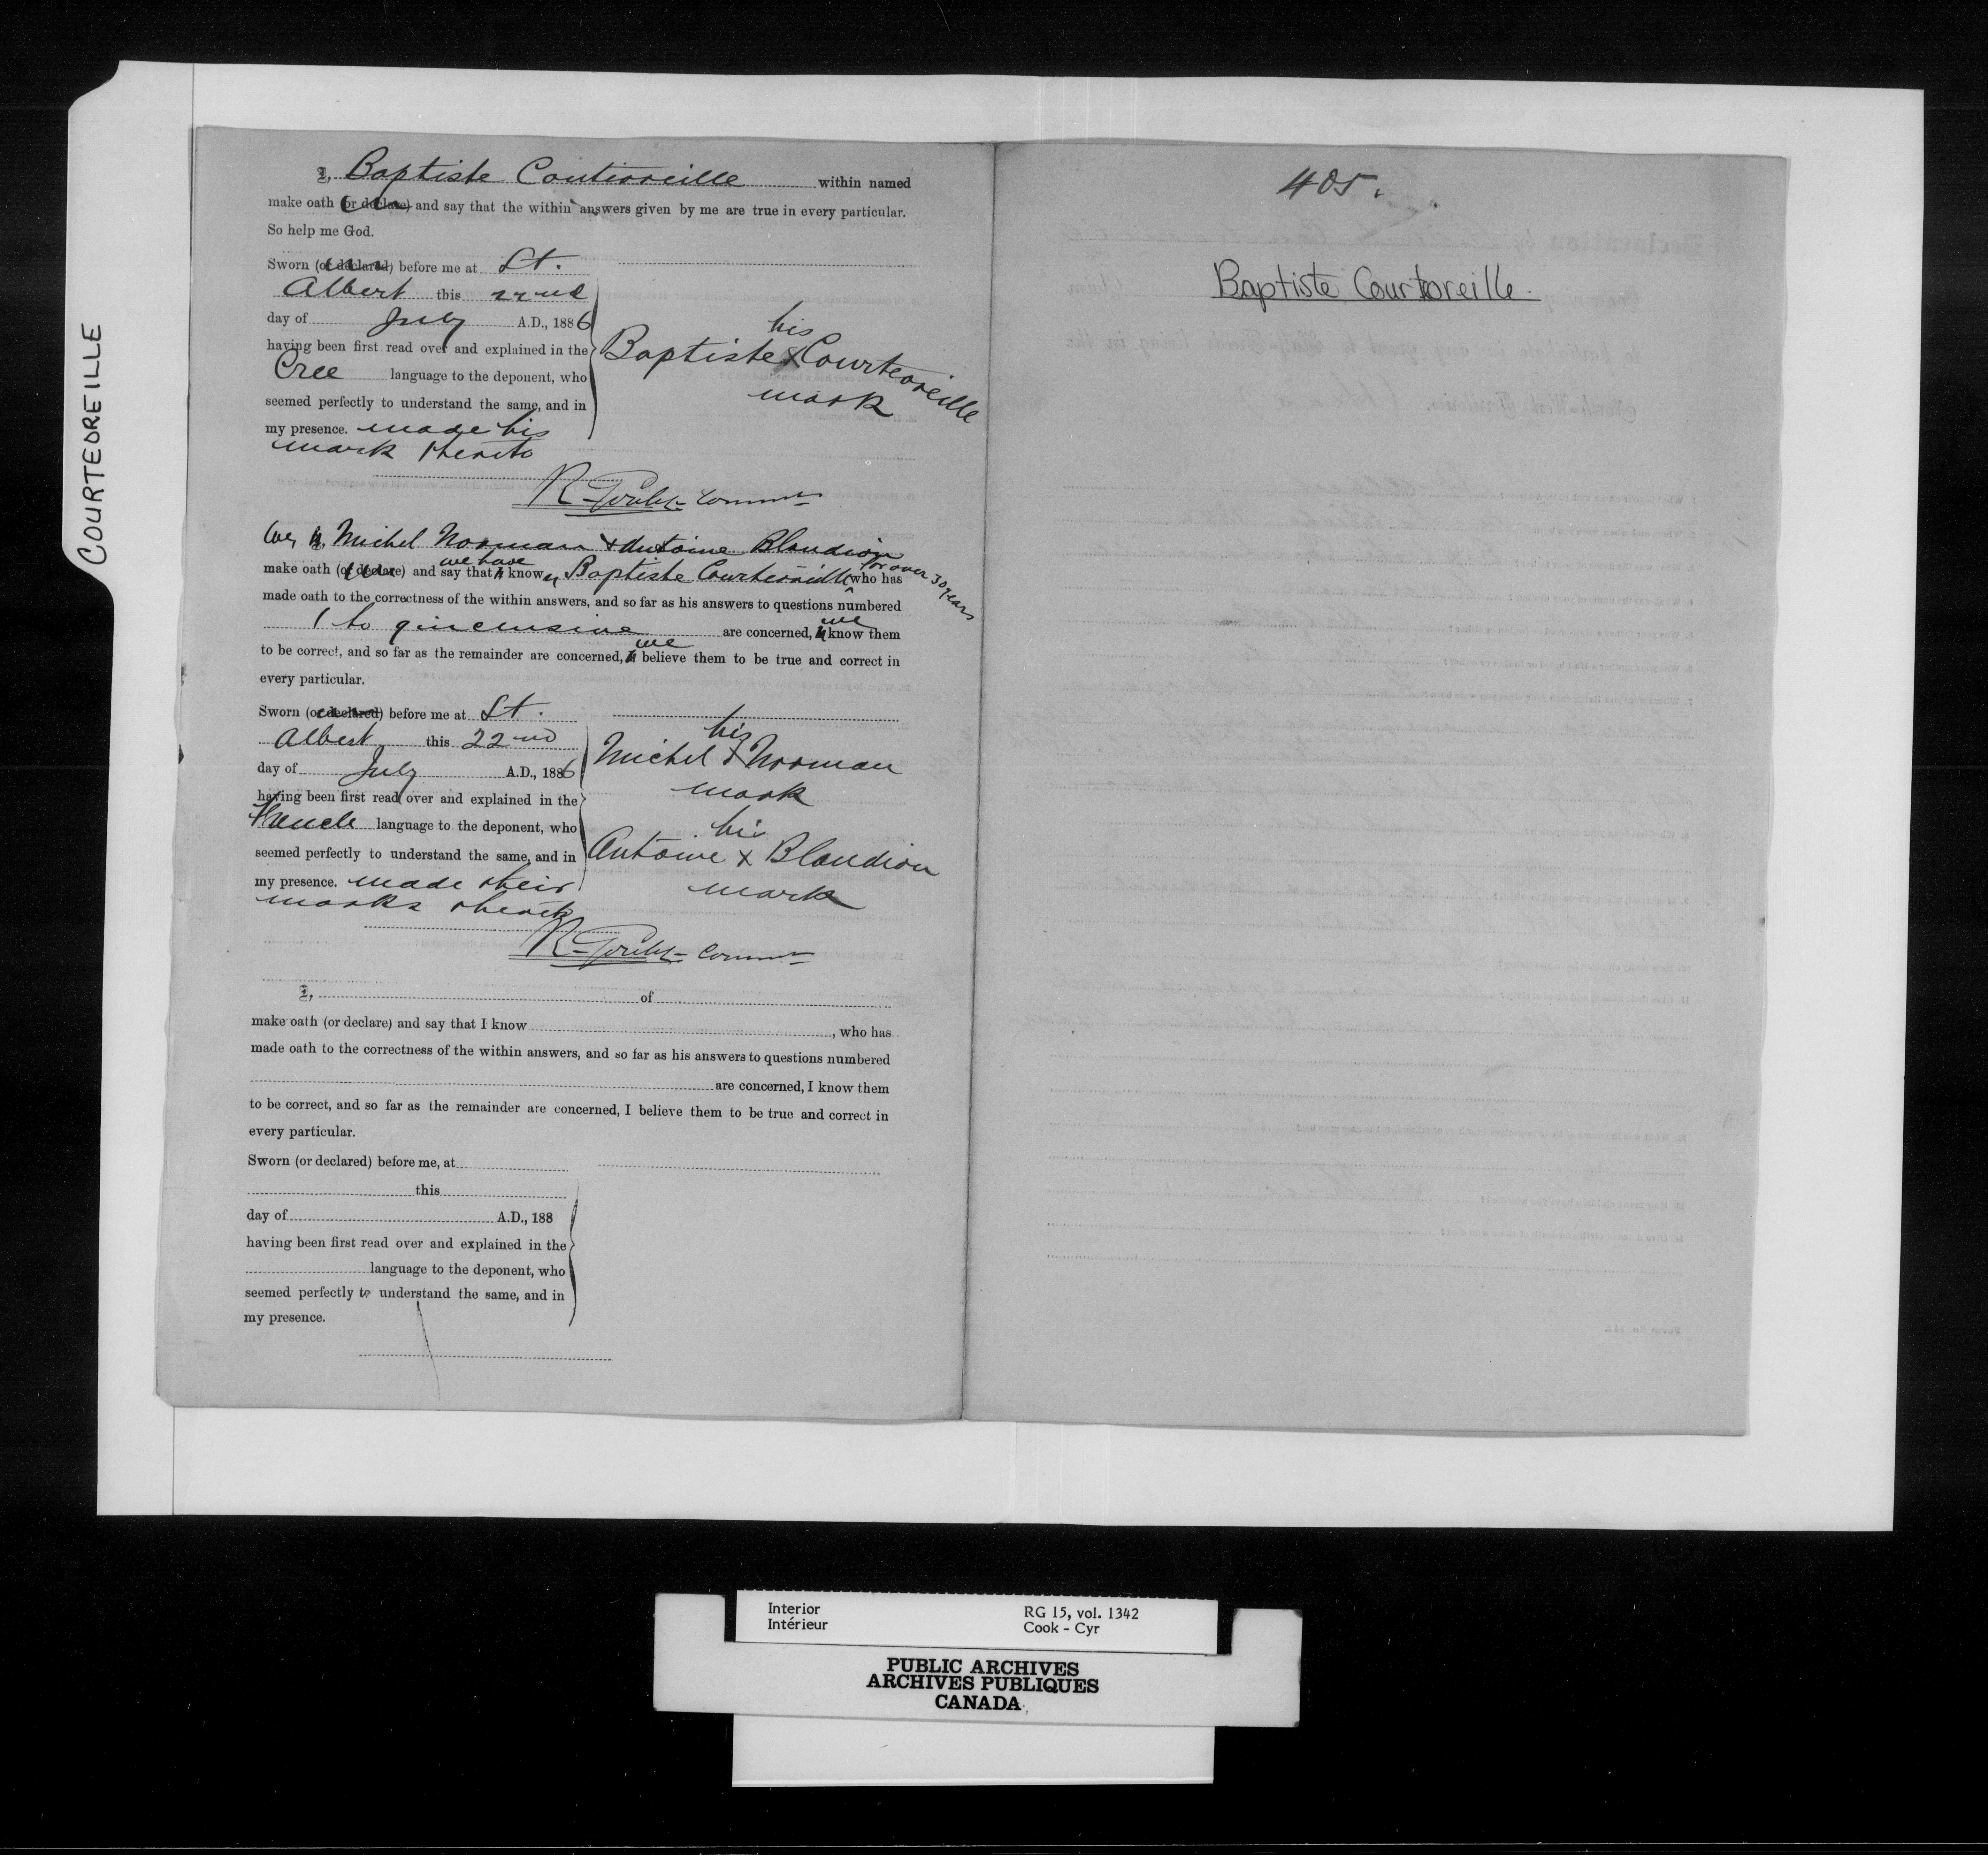 COURTEOREILLE
I, Baptiste Coutioreille within named
make oath (or declare) and say that the within answers given by me are true in every particular.
So help me God.
Sworn (or declared) before me at St.
Albert this 22nd
day of July A.D., 1886
having been first read over and explained in the
Cree language to the deponent, who
seemed perfectly to understand the same, and in
my presence. made his
mark thereto
his
Baptiste X Courteoreille
mark
R. Goulet Commr
We, Michel Norman & Antoine Blandion
make oath (or declare) and say that we have known Baptiste Courteoreille for over 30 years who has
made oath to the correctness of the within answers, and so far as his answers to questions numbered
1 to 9 inclusive are concerned, we know them
to be correct, and so far as the remainder are concerned, we believe them to be true and correct in
every particular.
Sworn (or declared) before me at St.
Albert this 22nd
day of July A.D., 1886
having been first read over and explained in the
French language to the deponent, who
seemed perfectly to understand the same, and in
my presence. made their
marks thereto
his
Michel X Norman
mark
his
Antoine X Blandion
mark
R. Goulet Commr
I, of
make oath (or declare) and say that I know , who has
made oath to the correctness of the within answers, and so far as his answers to questions numbered
are concerned, I know them
to be correct, and so far as the remainder are concerned, I believe them to be true and correct in
every particular.
Sworn (or declared) before me, at
this
day of A.D., 188
having been first read over and explained in the
language to the deponent, who
seemed perfectly to understand the same, and in
my presence.
405.
Baptiste Courtoreille.
Interior RG 15, vol. 1342
Intérieur Cook - Cyr
PUBLIC ARCHIVES
ARCHIVES PUBLIQUES
CANADA